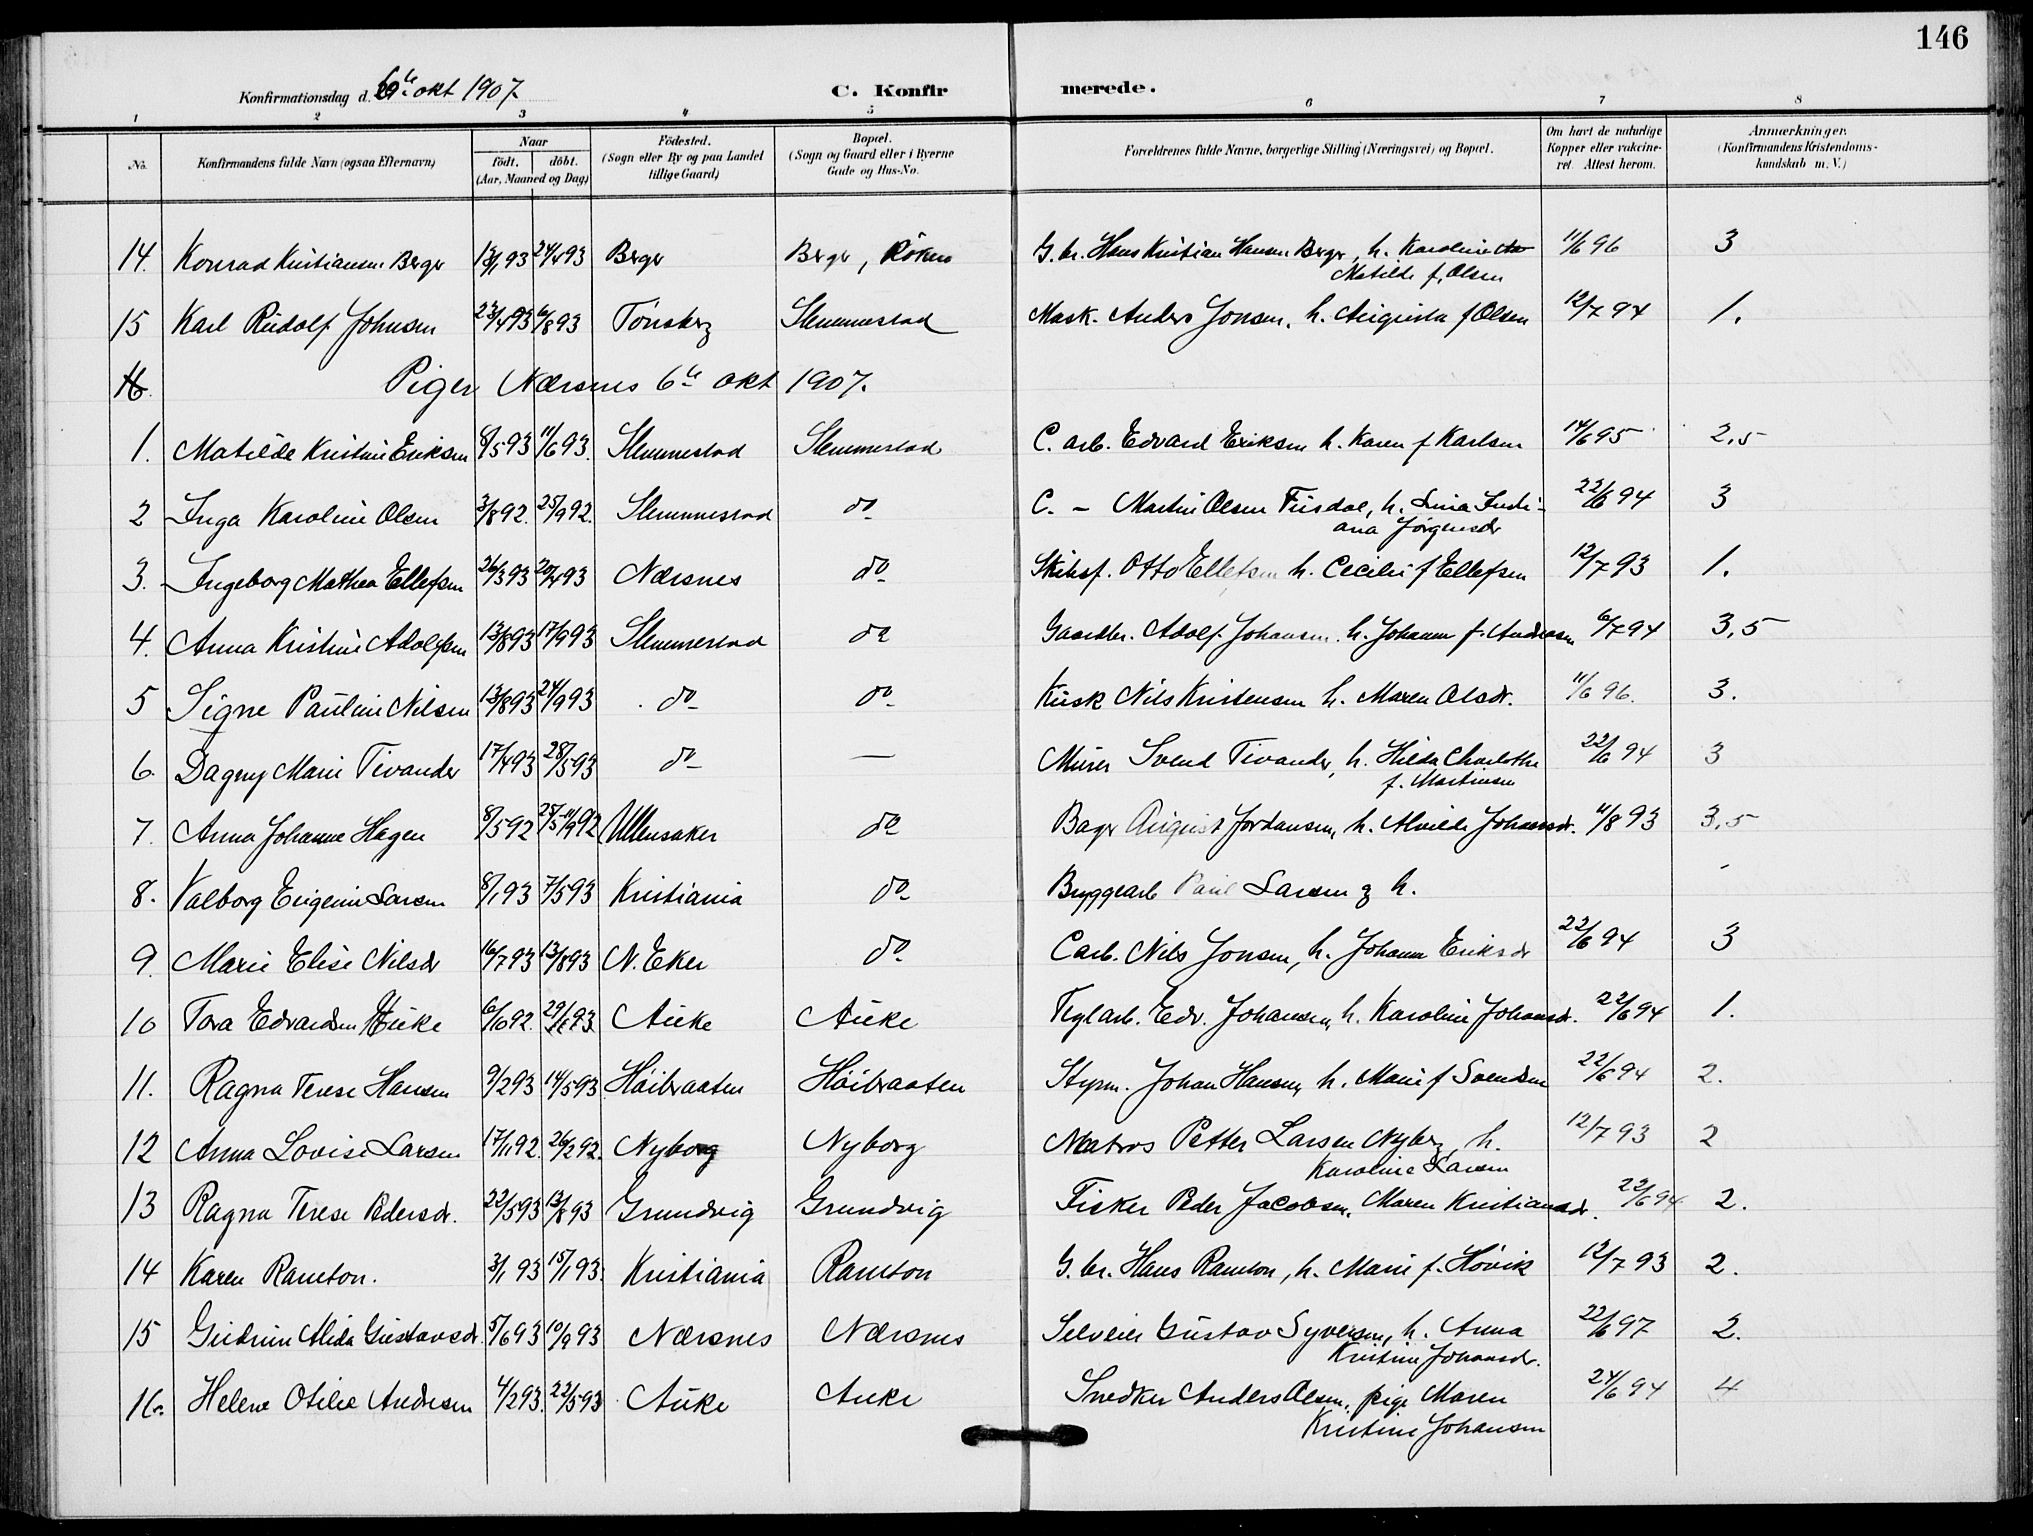 146
Konfirmationsdag d. 6te okt 1907.
C. Konfirmerede.
1 2 3 4 5 6 7 8
No. Konfirmandens fulde Navn (ogsaa Efternavn) Naar født. døbt. (Aar, Maaned og Dag) Fødested. (Sogn eller By og paa Landet tillige Gaard) Bopæl. (Sogn og Gaard eller i Byerne Gade og Hus-No. Forældrenes fulde Navne, borgerlige Stilling (Næringsvei) og Bopæl. Om havt de naturlige Kopper eller vakcineret. Attest herom. Anmærkninger. (Konfirmandens Kristendomskundskab m. V.)
14. Konrad Kristiansen Berger 13/1 93 24/4 93 Berger Berger, Röken G.br. Hans Kristian Hansen Berger, h. Karoline
Matilde f. Olsen 11/6 96 3
15 Karl Rudolf Johnsen 23/4 93 6/8 93 Tönsberg Slemmestad Mask. Anders Jonsen, h. Augusta f Olsen 12/7 94 1.
16 Piger Nærsnes 6te okt 1907.
1. Matilde Kristine Eriksen 8/5 93 11/6 93. Slemmestad Slemmestad C. arb. Edvard Eriksen h. Karen f Karlsen 14/6 95 2,5
2 Inga Karoline Olsen 3/8 92. 25/9 92. Slemmestad do C. - Martin Olsen h. Lina
Jörgensdr 22/6 94 3
3. Ingeborg Mathea Ellefsen 26/3 93 20/4 93 Nærsnes do Skibsf. Otto Ellefsen h. Cecilie f Ellefsen 12/7 93 1.
4. Anna Kristine Adolfsen 13/8 93 17/9 93 Slemmestad do Gaardbr. Adolf Johansen h. Johanne f. Andreasen 6/7 94 3,5
5 Signe Pauline Nilsen 13/8 93 24/9 93 do do Kusk Nils Kristensen h. Maren Olsdr. 11/6 96. 3.
6. Dagny Marie Tivander 17/4 93 28/5 93 do — Murer Svend Tivander, h. Hilda Charlotte
f. Martinsen 22/6 94 3
7. Anna Johanne Hagen 8/5 92 25/5-11/9 92 Ullensaker do August Jordansen, h. Alvilde Johansdr. 11/8 93 3,5
8. Valborg Eugenie Larsen 8/1 93 7/5 93 Kristiania do Bryggearb Paul Larsen g h. -
9. Marie Elise Nilsdr 16/7 93 13/8 93 N. Eker do C arb. Nils Jonsen, h. Johanne Eriksdr 22/6 94 3
10 Tora Edvardsen Auke 6/10 92. 29/1 93. Auke Auke Teglarb. Edv. Johansen, h. Karoline Johansdr. 22/6 94 1.
11. Ragna Terese Hansen 9/2 93 14/5 93 Höibraaten Höibraaten Styrm. Johan Hansen, h. Marie f Svendsen 22/6 94 2.
12 Anna Lovise Larsen 17/1 92. 26/2 92. Nyborg Nyborg Matros Petter Larsen Nyberg, h.
Karoline Larsen 12/7 93 2
13 Ragna Terese Pedersdr. 22/5 93 13/8 93 Grundvig Grundvig Fisker Peder Jacobsen, Maren Kristiansdr. 22/6 94 2.
14 Karen Ramton. 3/1 93 15/1 93. Kristiania Ramton G. br. Hans Ramton, h. Marie f. Hövik 12/7 93 2.
15 Gudrun Alida Gustavsdr. 5/6 93 10/9 93 Nærsnes Nærsnes Selveier Gustav Syversen, h. Anna
Kristine Johansdr. 22/6 97 2.
16. Helene Otilie Andresen 4/2 93. 22/5 93 Auke Auke Snedker Anders Olsen, pige Maren
Kristine Johansen 24/6 94 4